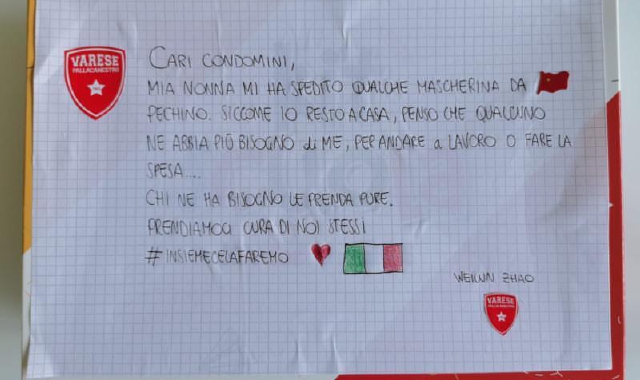 VARESE
PALLACANESTRO
CARI CONDOMINI,
MIA NONNA MI HA SPEDITO QUALCHE MASCHERINA DA
PECHINO. SICCOME IO RESTO A CASA, PENSO CHE QUALCUNO
NE ABBIA PIÙ BISOGNO di ME, PER ANDARE a LAVORO O FARE LA
SPESA...
CHI NE HA BISOGNO LE PRENDA PURE.
PRENDIAMOCI CURA DI NOI STESSI
#INSIEMECELAFAREMO
WEILUN ZHAO
VARESE
PALLACANESTRO